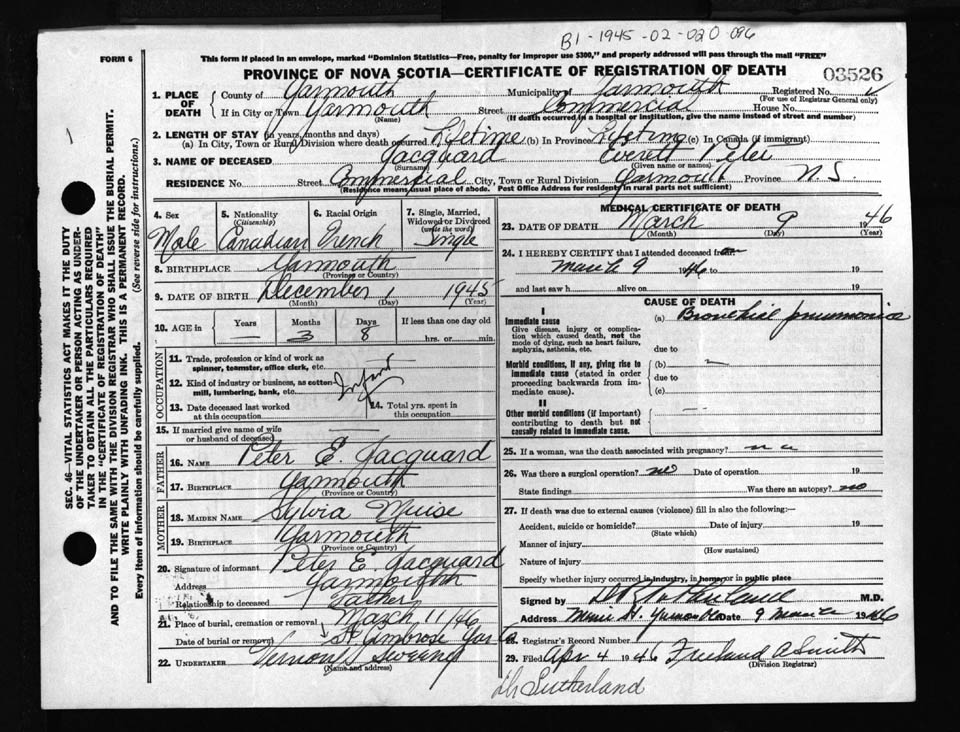 B1-1945-02-020096
FORM 6
This form if placed in an envelope, marked "Dominion Statistics—Free, penalty for improper use $300," and properly addressed will pass through the mail "FREE"
PROVINCE OF NOVA SCOTIA—CERTIFICATE OF REGISTRATION OF DEATH
03526
1. PLACE OF DEATH County of Yarmouth Municipality of Yarmouth Registered No.
(For use of Registrar General only)
If in City or Town Yarmouth Street Commercial House No.
(Name) (If death occurred in a hospital or institution, give the name instead of street and number)
2. LENGTH OF STAY (in years, months and days)
(a) In City, Town or Rural Division where death occurred Lifetime (b) In Province Lifetime (c) In Canada (if immigrant)
3. NAME OF DECEASED Jacquard Everett Peter
(Surname) (Given name or names)
RESIDENCE No. Street Commercial City, Town or Rural Division Yarmouth Province N.S.
(Residence means usual place of abode. Post Office Address for residents in rural parts not sufficient)
4. Sex 5. Nationality (Citizenship) 6. Racial Origin 7. Single, Married, Widowed or Divorced (write the word)
Male Canadian French Single
8. BIRTHPLACE Yarmouth
(Province or Country)
9. DATE OF BIRTH December 1 1945
(Month) (Day) (Year)
10. AGE in Years Months Days If less than one day old
— 3 8 hrs. or min.
OCCUPATION
11. Trade, profession or kind of work as spinner, teamster, office clerk, etc.
12. Kind of industry or business, as cotton mill, lumbering, bank, etc.
Infant
13. Date deceased last worked at this occupation
14. Total yrs. spent in this occupation
15. If married give name of wife or husband of deceased
FATHER
16. NAME Peter E. Jacquard
17. BIRTHPLACE Yarmouth
(Province or Country)
MOTHER
18. MAIDEN NAME Sylvia Muise
19. BIRTHPLACE Yarmouth
(Province or Country)
20. Signature of informant Peter E. Jacquard
Address Yarmouth
Relationship to deceased Father
21. Place of burial, cremation or removal
March 11/46
Date of burial or removal St Ambrose
22. UNDERTAKER Vernon Sweeny
MEDICAL CERTIFICATE OF DEATH
23. DATE OF DEATH March 9 1946
(Month) (Day) (Year)
24. I HEREBY CERTIFY that I attended deceased from
March 9 1946 to 19
and last saw h alive on 19
CAUSE OF DEATH
I
Immediate cause
Give disease, injury or complication which caused death, not the mode of dying, such as heart failure, asphyxia, asthenia, etc.
(a) Bronchial pneumonia
due to
Morbid conditions, if any, giving rise to immediate cause (stated in order proceeding backwards from immediate cause).
(b)
due to
(c)
II
Other morbid conditions (if important) contributing to death but not causally related to immediate cause.
25. If a woman, was the death associated with pregnancy?
26. Was there a surgical operation? no Date of operation 19
State findings Was there an autopsy? no
27. If death was due to external causes (violence) fill in also the following:—
Accident, suicide or homicide? Date of injury 19
(State which)
Manner of injury
(How sustained)
Nature of injury
Specify whether injury occurred in industry, in home, or in public place
Signed by Sutherland M.D.
Address Main St. Yarmouth Date 9 March 1946
28. Registrar's Record Number
29. Filed Apr 4 1946 Freeland A Smith
(Division Registrar)
Dr Sutherland
SEC. 46—VITAL STATISTICS ACT MAKES IT THE DUTY
OF THE UNDERTAKER OR PERSON ACTING AS UNDER-
TAKER TO OBTAIN ALL THE PARTICULARS REQUIRED
IN THE "CERTIFICATE OF REGISTRATION OF DEATH"
AND TO FILE THE SAME WITH THE DIVISION REGISTRAR WHO SHALL ISSUE THE BURIAL PERMIT.
WRITE PLAINLY WITH UNFADING INK. THIS IS A PERMANENT RECORD.
Every item of information should be carefully supplied. (See reverse side for instructions.)